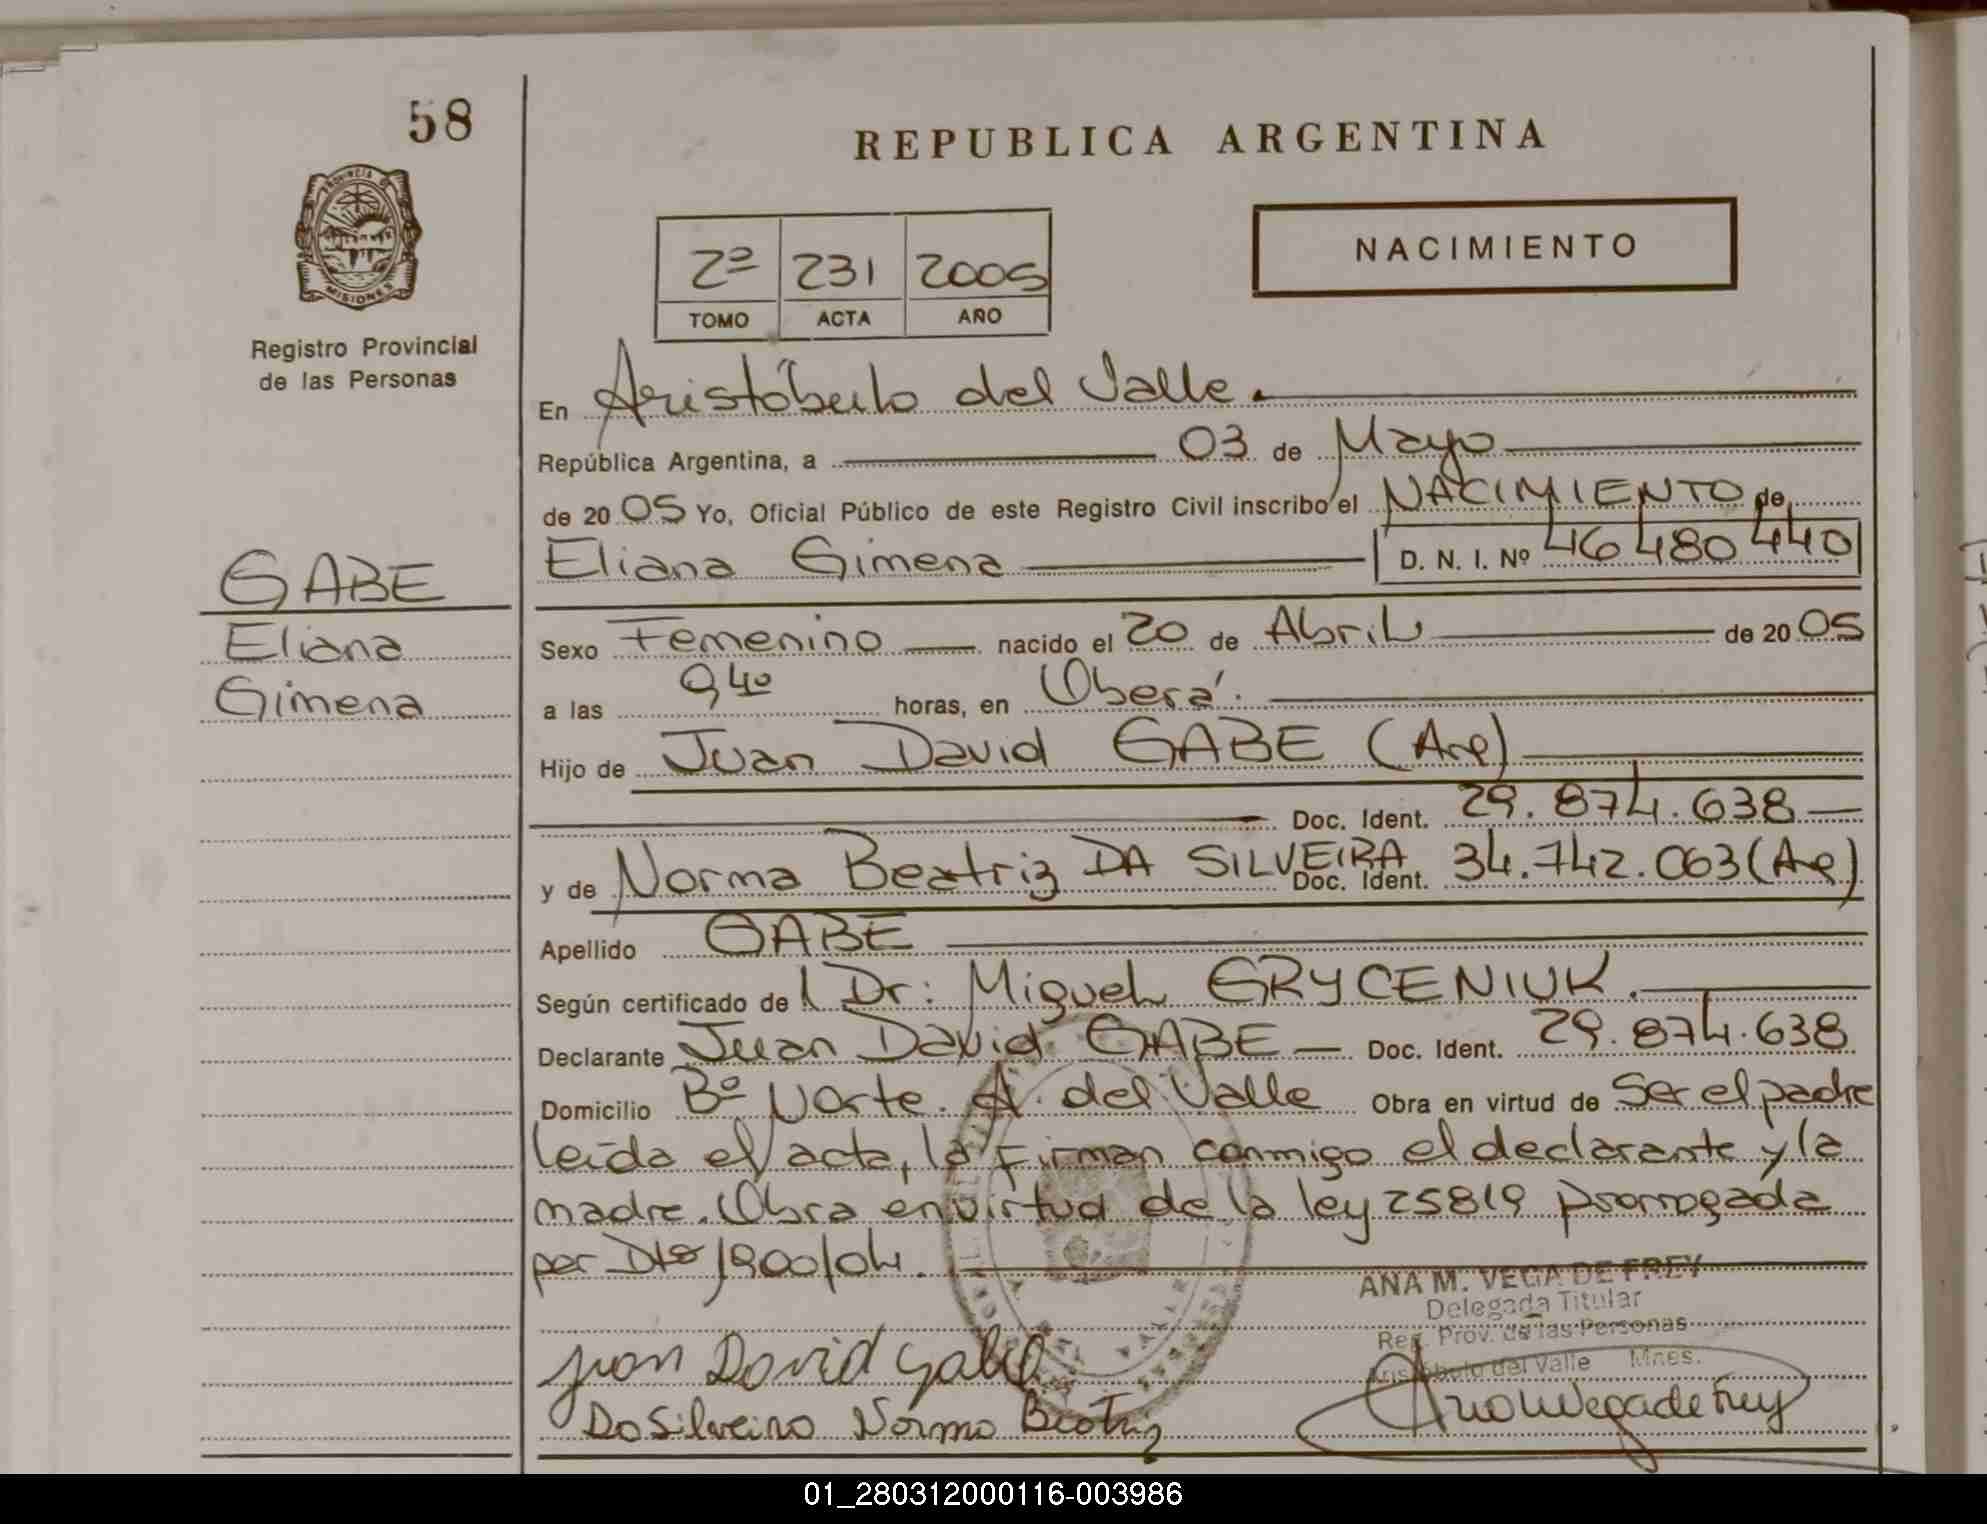 58
REPUBLICA ARGENTINA
PROVINCIA DE
MISIONES
Registro Provincial
de las Personas
2º 231 2005
TOMO ACTA AÑO
NACIMIENTO
En Aristóbulo del Valle.
República Argentina, a 03 de Mayo
de 2005 Yo, Oficial Público de este Registro Civil inscribo el NACIMIENTO de
Eliana Gimena D. N. I. Nº 46 480 440
GABE
Eliana
Gimena
Sexo Femenino nacido el 20 de Abril de 2005
a las 9 40 horas, en Oberá.
Hijo de Juan David GABE (Arg)
Doc. Ident. 29.874.638
y de Norma Beatriz DA SILVEIRA Doc. Ident. 34.742.063 (Arg)
Apellido GABE
Según certificado de l Dr: Miguel GRYCENIUK.
Declarante Juan David GABE Doc. Ident. 29.874.638
Domicilio Bº Norte. A. del Valle Obra en virtud de Ser el padre
leída el acta, la firman conmigo el declarante y la
madre. Obra en virtud de la ley 25819 prorrogada
por Dto 1900/04.
ANA M. VEGA DE FREY
Delegada Titular
Reg. Prov. de las Personas
Aristóbulo del Valle Mnes.
Juan David Gabe
Da Silveira Norma Beatriz
Ana M Vega de Frey
01_280312000116-003986